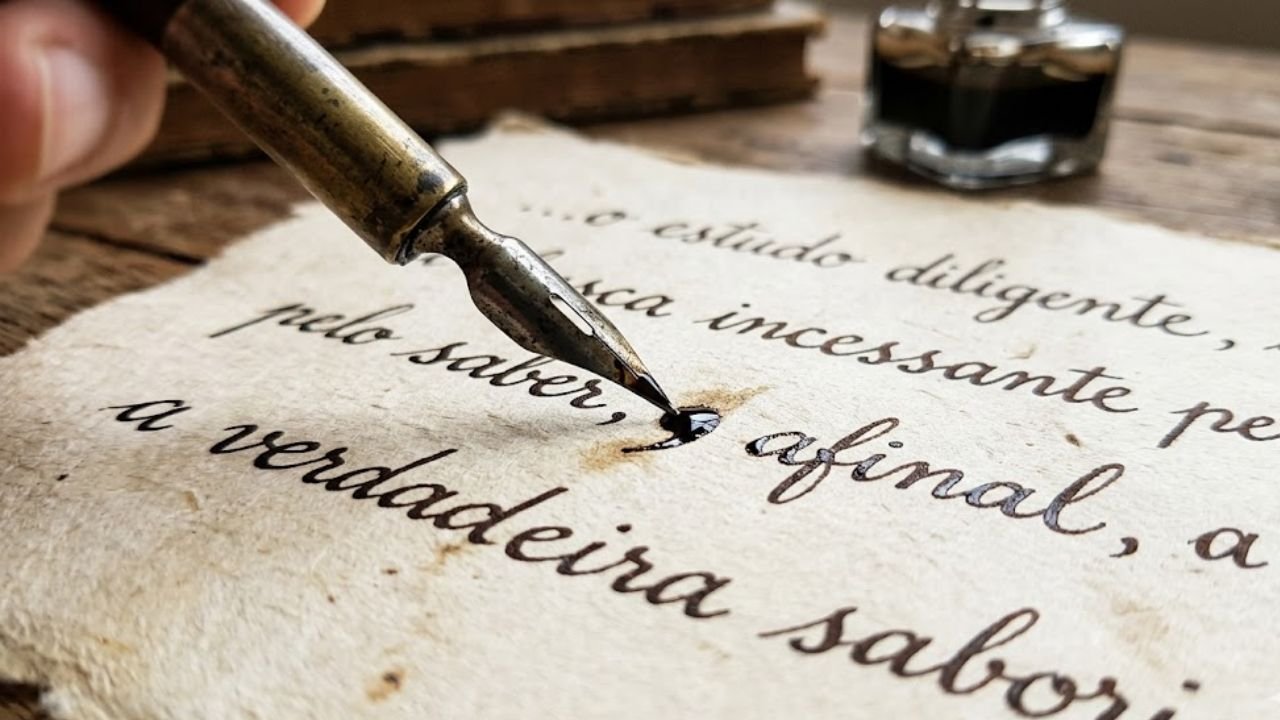 ...o estudo diligente,
incessante pe
pelo saber, , afinal, a
a verdadeira sabori